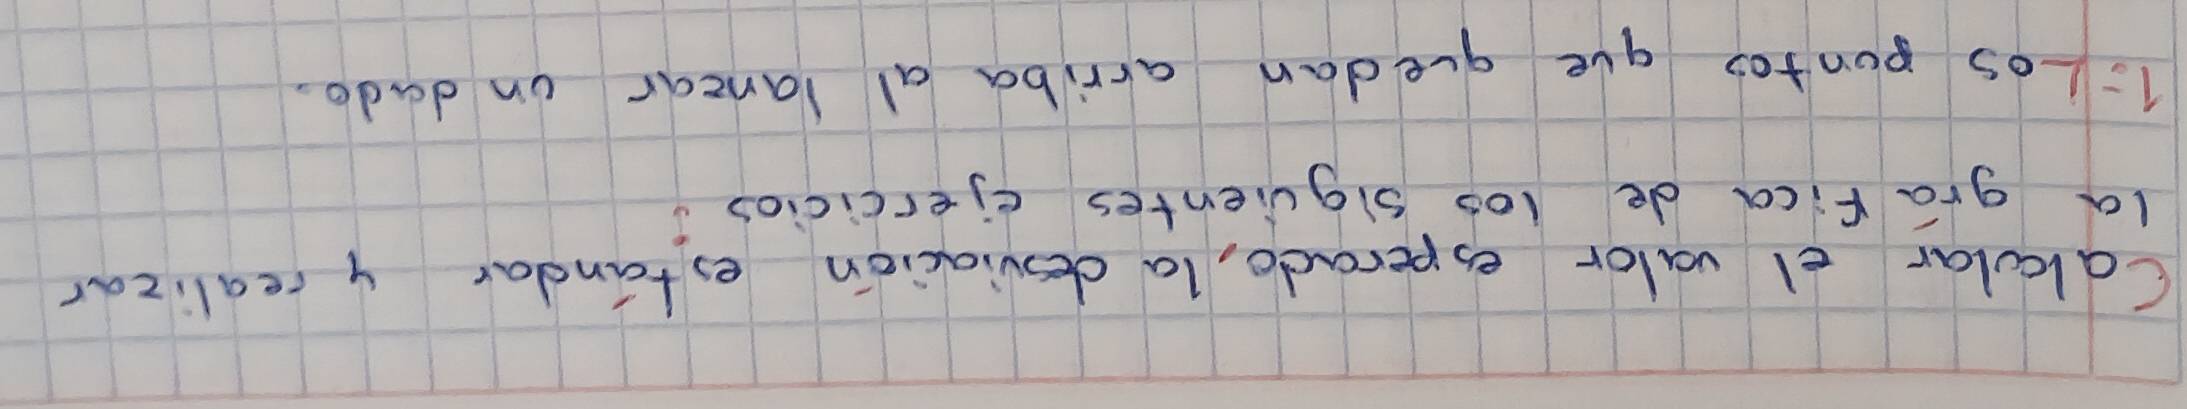 Calcular el valor esperado, la desviación estándar y realizar
la gráfica de los siguientes ejercicios:
1=Los puntos que quedan arriba al lanzar un dado.